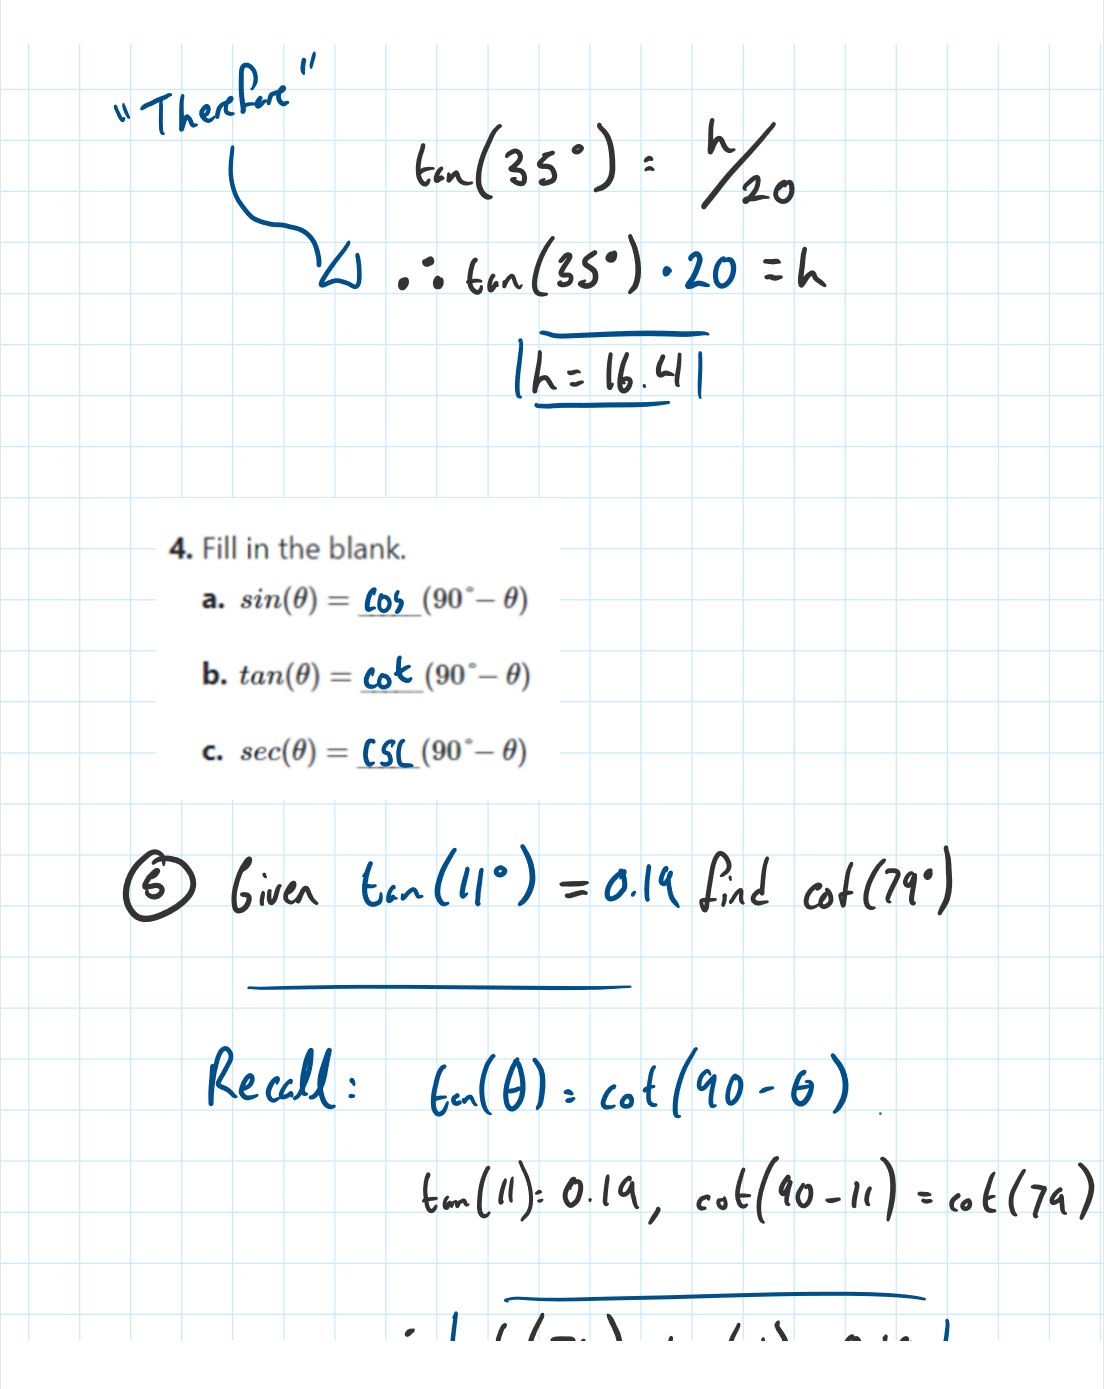 "Therefore"
tan(35°) = h/20
∴ tan(35°) · 20 = h
h = 16.41
4. Fill in the blank.
a. sin(θ) = cos (90° − θ)
b. tan(θ) = cot (90° − θ)
c. sec(θ) = csc (90° − θ)
6 Given tan(11°) = 0.19 find cot(79°)
Recall: tan(θ) = cot(90 - θ)
tan(11) = 0.19, cot(90 - 11) = cot(79)